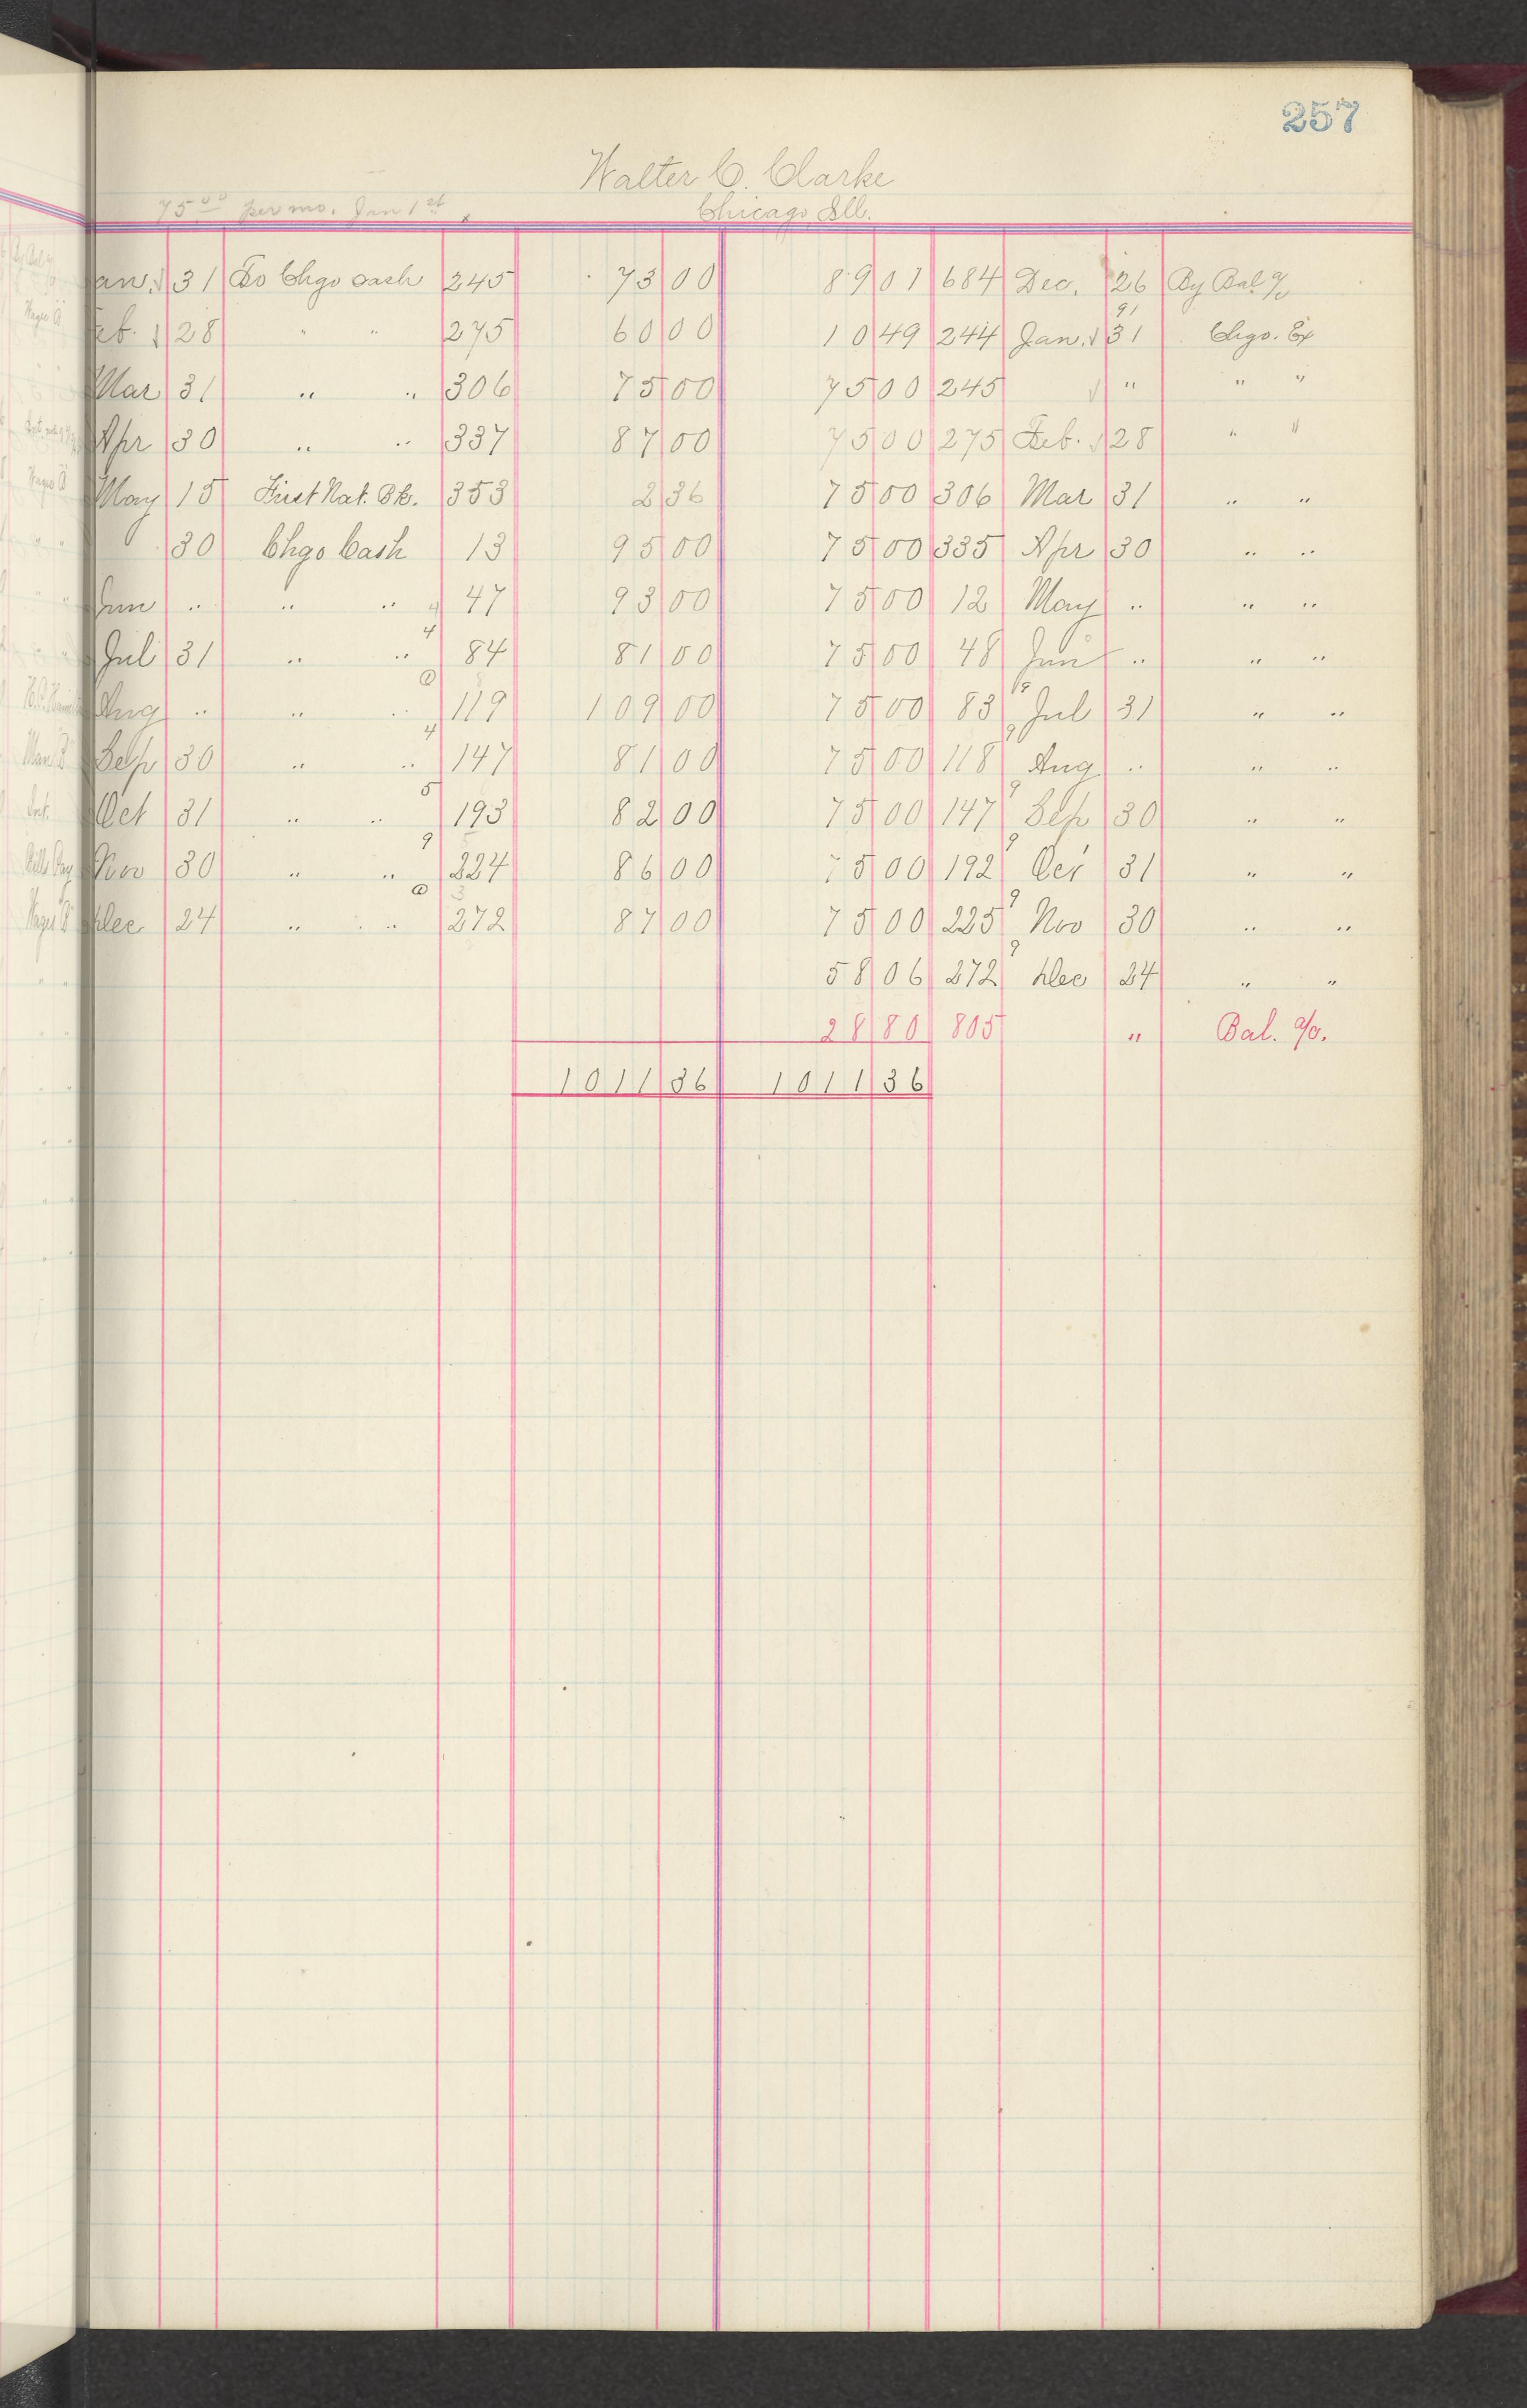 257
Walter C. Clarke
75 00 per mo. Jan 1st. Chicago Ill.
Jan. 31 To Chgo Cash 245 73 00 89 01 684 Dec. 26 By Bal. %
Feb. 28 " " 275 60 00 10 49 244 Jan. 31 Chgo. Ex
Mar 31 " " 306 75 00 75 00 245 " " "
Apr 30 " " 337 87 00 75 00 275 Feb. 28 " "
May 15 First Nat. Bk. 353 2 36 75 00 306 Mar 31 " "
30 Chgo Cash 13 95 00 75 00 335 Apr 30 " "
Jun " " " 47 93 00 75 00 12 May " " "
Jul 31 " " 84 81 00 75 00 48 Jun " " "
Aug " " " 119 109 00 75 00 83 Jul 31 " "
Sep 30 " " 147 81 00 75 00 118 Aug " " "
Oct 31 " " 193 82 00 75 00 147 Sep 30 " "
Nov 30 " " 224 86 00 75 00 192 Oct 31 " "
Dec 24 " " 272 87 00 75 00 225 Nov 30 " "
58 06 272 Dec 24 " "
28 80 805 " Bal. %.
1011 36 1011 36